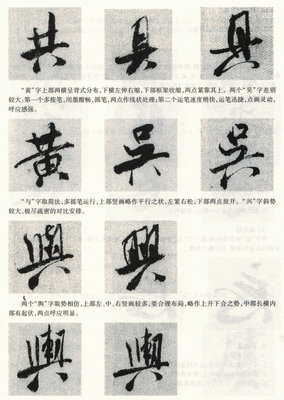 共 具 具
“黄”字上部两横呈背式分布,下横左伸右缩,下部框架收缩,两点紧靠其上。两个“吴”字差别
较大:第一个多按笔,用墨酣畅,圆笔,两点作线状处理;第二个运笔速度稍快,运笔迅捷,点画灵动,
呼应感强。
黄 吴 吴
“与”字取简法,多提笔运行,上部竖画略作平行之状,左紧右松,下部两点放开。“兴”字斜势
较大,极尽疏密的对比安排。
與 興
两个“舆”字取势相仿,上部左、中、右竖画较多,要合理布局,略作上开下合之势,中部长横内
部有起伏,两点呼应明显。
輿 輿